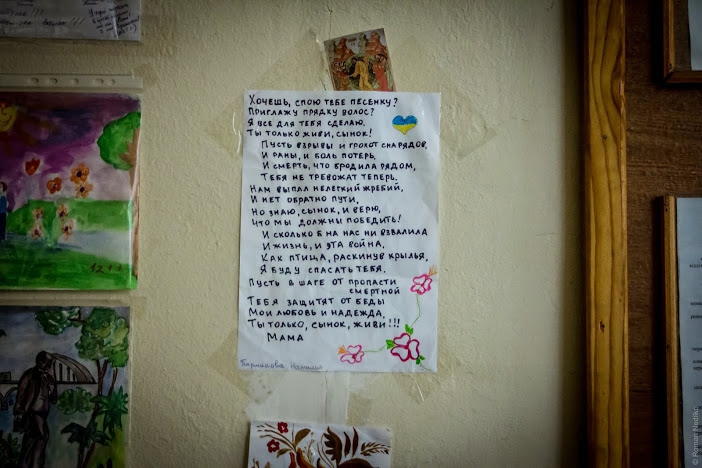 Хочешь, спою тебе песенку?
Приглажу прядку волос?
Я все для тебя сделаю.
Ты только живи, сынок!
Пусть взрывы и грохот снарядов,
И раны, и боль потерь,
И смерть, что бродила рядом,
Тебя не тревожат теперь.
Нам выпал нелегкий жребий,
И нет обратно пути,
Но знаю, сынок, и верю,
Что мы должны победить!
И сколько б на нас ни взвалила
И жизнь, и эта война,
Как птица, раскинув крылья,
Я буду спасать тебя.
Пусть в шаге от пропасти
смертной
Тебя защитят от беды
Мои любовь и надежда,
Ты только, сынок, живи!!!
Мама
© Roman Nedilko